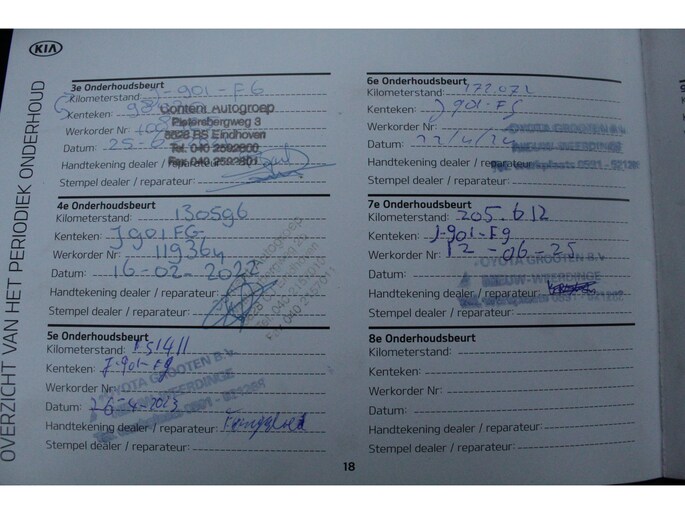 KIA
OVERZICHT VAN HET PERIODIEK ONDERHOUD
3e Onderhoudsbeurt
Kilometerstand J-901-FG
Kenteken:
Werkorder Nr
Datum: 25-
Handtekening dealer / reparateur:
Stempel dealer / reparateur:
Content Autogroep
Pietersbergweg 3
5628 BS Eindhoven
Tel. 040 2592800
Fax 040 2592801
4e Onderhoudsbeurt
Kilometerstand: 130596
Kenteken: J901FG
Werkorder Nr: 119364
Datum: 16-02-2022
Handtekening dealer / reparateur:
Stempel dealer / reparateur:
Autogroep
5e Onderhoudsbeurt
Kilometerstand: 151411
Kenteken: J-901-FG
Werkorder Nr:
Datum: 26-4-2023
Handtekening dealer / reparateur:
Stempel dealer / reparateur:
TOYOTA GROOTEN B.V.
NIEUW-WEERDINGE
6e Onderhoudsbeurt
Kilometerstand: 177.072
Kenteken: J901-FG
Werkorder Nr:
Datum: 22/4/24
Handtekening dealer / reparateur:
Stempel dealer / reparateur:
TOYOTA GROOTEN B.V.
NIEUW-WEERDINGE
7e Onderhoudsbeurt
Kilometerstand: 205.612
Kenteken: J-901-FG
Werkorder Nr: 12-06-25
Datum:
Handtekening dealer / reparateur:
Stempel dealer / reparateur:
TOYOTA GROOTEN B.V.
NIEUW-WEERDINGE
8e Onderhoudsbeurt
Kilometerstand:
Kenteken:
Werkorder Nr:
Datum:
Handtekening dealer / reparateur:
Stempel dealer / reparateur:
18